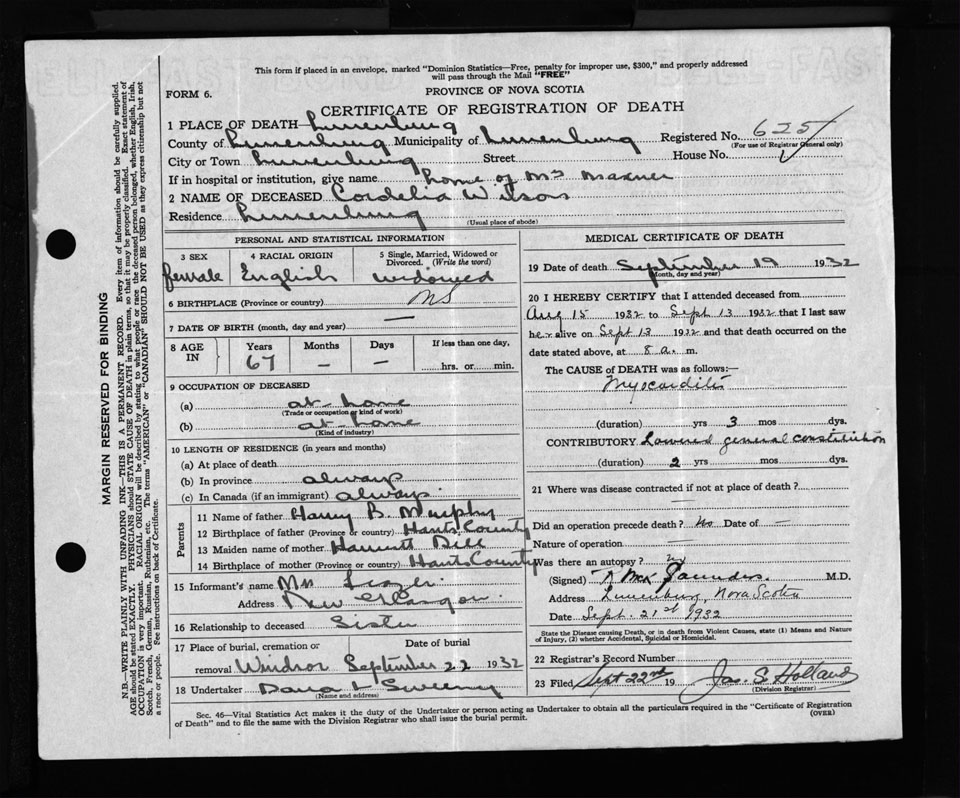 This form if placed in an envelope, marked "Dominion Statistics—Free, penalty for improper use, $300," and properly addressed
will pass through the Mail "FREE"
FORM 6.
PROVINCE OF NOVA SCOTIA
CERTIFICATE OF REGISTRATION OF DEATH
1 PLACE OF DEATH— Lunenburg
County of Lunenburg Municipality of Lunenburg Registered No. 625
(For use of Registrar General only)
City or Town Lunenburg Street House No.
If in hospital or institution, give name home of Mrs
2 NAME OF DECEASED Cordelia Wilson
Residence Lunenburg
(Usual place of abode)
PERSONAL AND STATISTICAL INFORMATION
3 SEX 4 RACIAL ORIGIN 5 Single, Married, Widowed or Divorced. (Write the word)
female English widowed
6 BIRTHPLACE (Province or country) NS
7 DATE OF BIRTH (month, day and year) —
8 AGE IN Years Months Days If less than one day,
67 — — hrs. or min.
9 OCCUPATION OF DECEASED
(a) at home
(Trade or occupation or kind of work)
(b) at home
(Kind of industry)
10 LENGTH OF RESIDENCE (in years and months)
(a) At place of death
(b) In province always
(c) In Canada (if an immigrant) always
Parents
11 Name of father Harry B. Murphy
12 Birthplace of father (Province or country) Hants County
13 Maiden name of mother Harriett Dill
14 Birthplace of mother (Province or country) Hants County
15 Informant's name Mrs
Address New Glasgow
16 Relationship to deceased Sister
17 Place of burial, cremation or Date of burial
removal Windsor September 22 1932
18 Undertaker Dana L Sweeny
(Name and address)
MEDICAL CERTIFICATE OF DEATH
19 Date of death September 19 1932
(Month, day and year)
20 I HEREBY CERTIFY that I attended deceased from
Aug 15 1932 to Sept 13 1932 that I last saw
her alive on Sept 13 1932 and that death occurred on
date stated above, at 8 a. m.
The CAUSE of DEATH was as follows:—
Myocarditis
(duration) yrs 3 mos dys.
CONTRIBUTORY Lowered general constitution
(duration) 2 yrs mos dys.
21 Where was disease contracted if not at place of death?
—
Did an operation precede death? no Date of —
Nature of operation —
Was there an autopsy?
(Signed) Saunders. M.D.
Address Lunenburg, Nova Scotia
Date Sept. 21st 1932
State the Disease causing Death, or in death from Violent Causes, state (1) Means and Nature
of Injury, (2) whether Accidental, Suicidal or Homicidal.
22 Registrar's Record Number
23 Filed Sept 22nd 19 Jas. S Holland
(Division Registrar)
Sec. 46—Vital Statistics Act makes it the duty of the Undertaker or person acting as Undertaker to obtain all the particulars required in the "Certificate of Registration
of Death" and to file the same with the Division Registrar who shall issue the burial permit.
(OVER)
MARGIN RESERVED FOR BINDING
N.B.—WRITE PLAINLY WITH UNFADING INK—THIS IS A PERMANENT RECORD. Every item of information should be carefully supplied.
AGE should be stated EXACTLY. PHYSICIANS should STATE CAUSE OF DEATH in plain terms, so that it may be properly classified. Exact statement of
OCCUPATION is very important. RACIAL ORIGIN will be described by stating to what people or race the deceased person belonged, whether English, Irish,
Scotch, French, German, Russian, Ruthenian, etc. The terms "AMERICAN" or "CANADIAN" SHOULD NOT BE USED as they express citizenship but not
a race or people. See instructions on back of Certificate.